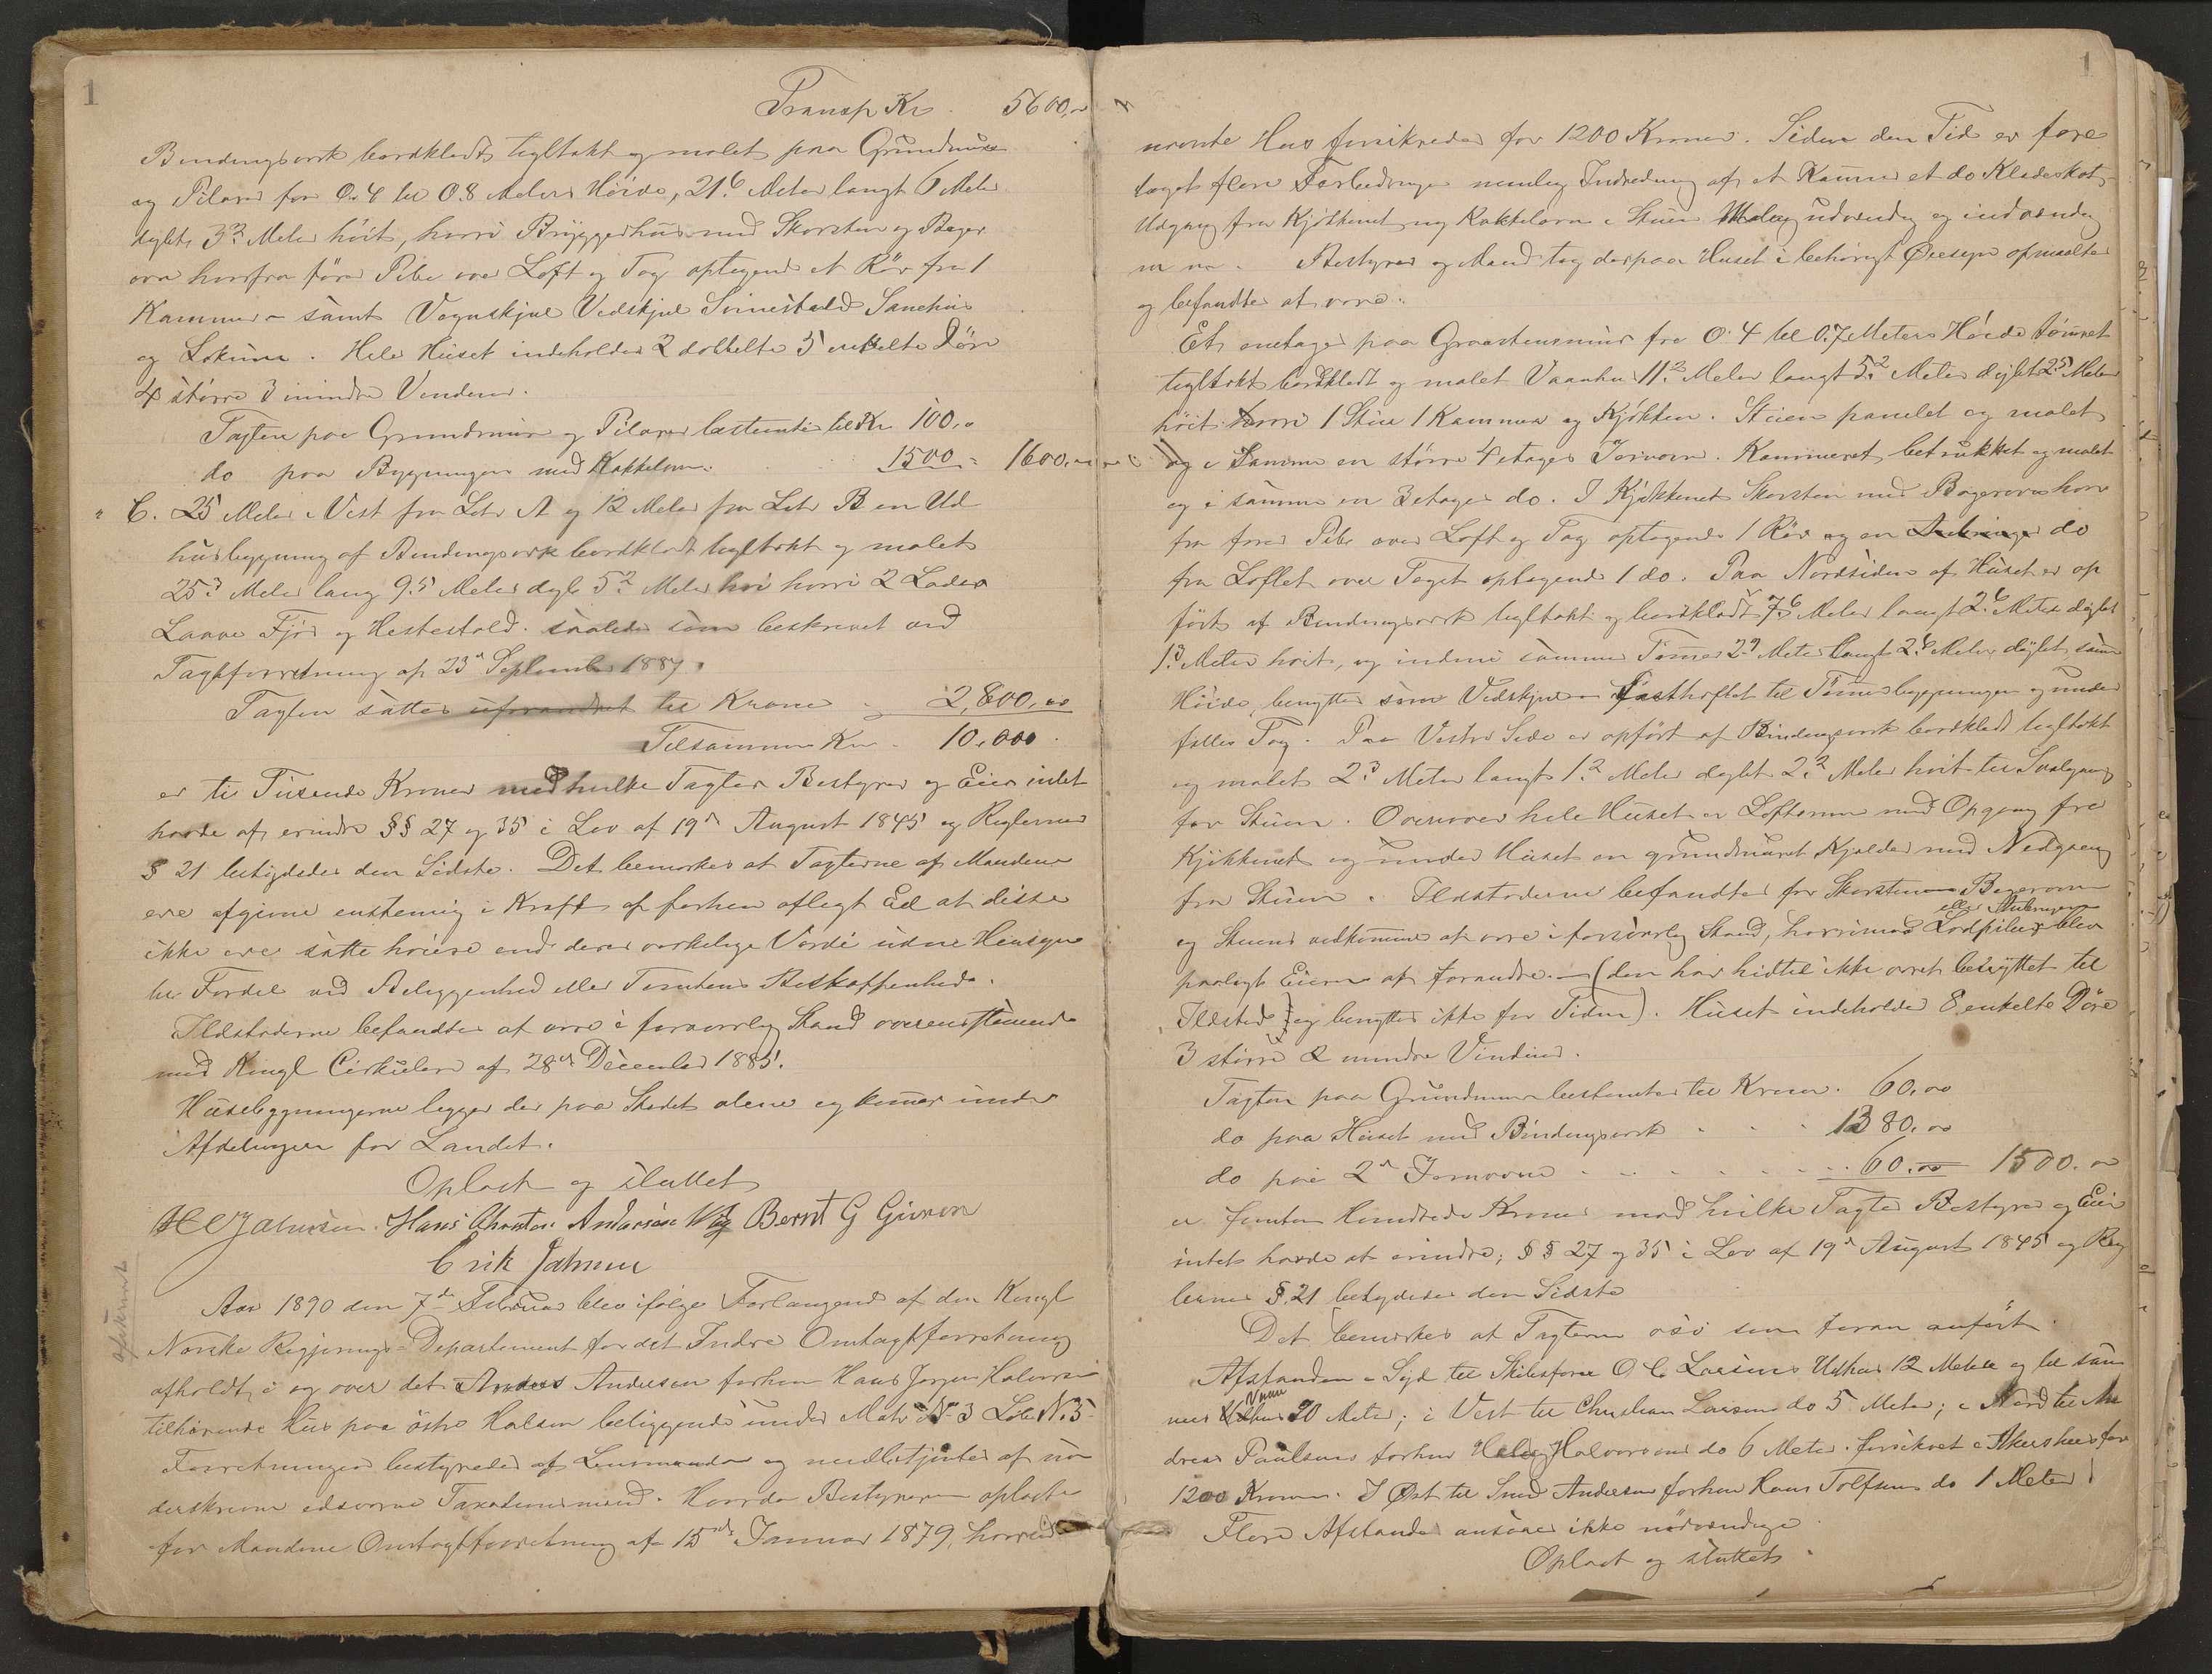 1
Transp Kr. 5600,00
Bindingsverk bordklædt tegltækt og malet paa Grundmur
og Pilarer fra 0.4 til 0.8 Meters Höide, 21.6 Meter langt 6 Meter
dybt 3.2 Meter höit, hvori Bryggerhus med Skorsten og Bager
ovn hvorfra förer Pibe over Loft og Tag optagende et Rör fra 1
Kammer – samt Vognskjul Vedskjul Svinestald
og Lokum. Hele Huset indeholder 2 dobbelte 5 enkelte Döre
4 större 3 mindre Vinduer.
Taxten paa Grundmur og Pilarer bestemtes til Kr 100,00
do paa Bygningen med Kakkelovn. 1500 = 1600,00
" C. 25 Meter i Vest fra Litr A og 12 Meter fra Litr B en Ud
husbygning af Bindingsverk bordklædt tegltækt og malet
25.3 Meter lang 9.5 Meter dyb 5.2 Meter höi hvori 2 Lader
Laave Fjös og Hestestald. saaledes som beskrevet ved
Taxtforretning af 23de September 1887.
Taxten sattes uforandret til Kroner 2,800,00
Tilsammen Kr. 10,000.
er ti Tusende Kroner mod hvilke Taxter Bestyrer og Eier intet
havde at erindre §§ 27 og 35 i Lov af 19de August 1845 og Reglernes
§ 21 betydedes den Sidste. Det bemærkes at Taxterne af Mændene
ere afgivne enstemmig i Kraft af forhen aflagt Ed at disse
ikke ere satte höiere end deres virkelige Værdi uden Hensyn
til Fordel ved Beliggenhed eller Tomtens Beskaffenhed.
Ildstederne befandtes at være i forsvarlig Stand overensstemmende
med Kongl Cirkulære af 28de December 1885.
Husebygningerne ligger der paa Stedet alene og kommer under
Afdelingen for Landet.
Oplæst og sluttet
Hans Christen Andersen Bernt G
Erik
afskrevet
Aar 1890 den 7de Februar blev ifölge Forlangende af den Kongl
Norske Regjerings-Departement for det Indre Omtaxtforretning
afholdt, i og over det Anders Andersen forhen Hans Jørgen Halvorsen
tilhørende Hus paa östre Halsen beliggende under Matr No 3 Löbe No 5
Forretningen bestyredes af Lensmanden og medbetjentes af un
derskrevne edsvorne Taxationsmænd. Hvorda Bestyreren oplæste
for Mændene Omtaxtforretning af 15de Januar 1879, hvorved
1
nævnte Hus forsikredes for 1200 Kroner. Siden den Tid er fore
taget flere Forbedringer nemlig Indredning af et Kammer et do Klædeskot
Udgang fra Kjökkenet ny Kakkelovn i Stuen Maling udvendig og indvendig
m m. Bestyrer og Mænd tog derpaa Huset i behörigt Øiesyn opmaaltes
og befandtes at være.
Et enetages paa Graastensmur fra 0.4 til 0.7 Meters Höide tömret
tegltækt bordklædt og malet Vaanhus 11.2 Meter langt 5.2 Meter dybt 2.5 Meter
höit hvori 1 Stue 1 Kammer og Kjökken. Stuen panelet og malet
og i Samme en större 4 etages Jernovn. Kammeret betrukket og malet
og i samme en 3 etages do. I Kjökkenet Skorsten med Bagerovn hvor
fra förer Pibe over Loft og Tag optagende 1 Rör og en do
fra Loftet over Taget optagende 1 do. Paa Nordsiden af Huset er op
fört af Bindingsverk tegltækt og bordklædt 7.6 Meter langt 2.6 Meter dybt
1.3 Meter höit, og indeni samme Tömmer 2.9 Meter langt 2.6 Meter dybt samme
Höide, benyttes som Vedskjul – fasthæftet til Tömmerbygningen og under
fælles Tag. Paa Vestre Side er opfört af Bindingsverk bordklædt tegltækt
og malet 2.3 Meter langt 1.2 Meter dybt 2.2 Meter höit til Svalgang
for Stuen. Ovenover hele Huset er Loftsrum med Opgang fra
Kjökkenet og under Huset en grundmuret Kjælder med Nedgang
fra Stuen. Ildstederne befandtes for Skorstenen Bagerovn
og Stuens vedkommende at være i forsvarlig Stand, hvorimod blev
paalagt Eieren at forandre. – (den har hidtil ikke været benyttet til
Ildsted og benyttes ikke for Tiden). Huset indeholder 8 enkelte Döre
3 större 2 mindre Vinduer.
Taxten paa Grundmuren bestemtes til Kroner. 60,00
do paa Huset med Bindingsverk 1380,00
do paa 2de Jernovne 60,00 1500,00
er femten Hundrede Kroner mod hvilke Taxter Bestyrer og Eier
intet havde at erindre; §§ 27 og 35 i Lov af 19de August 1845 og Reg
lernes § 21 betydedes den Sidste
Det bemærkes at Taxterne osv som foran anført.
Afstanden i Syd til Skibsförer O C Larsens Udhus 12 Meter og til sam
mes Vaanhus 20 Meter; i Vest til Christian Larsens do 5 Meter; i Nord til An
dreas Paulsens forhen Halvorsens do 6 Meter. forsikret i Akershus for
1200 Kroner. I Øst til Smed Andersen forhen Hans Tolfsens do 1 Meter
Flere Afstande ansaaes ikke nödvendige.
Oplæst og sluttet.